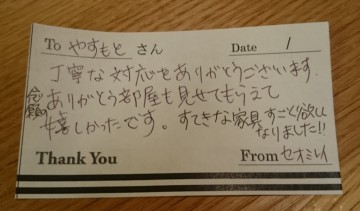 To やすもと さん Date /
丁寧な対応をありがとうございます.
念願のありがとう部屋も見せてもらえて
嬉しかったです。すてきな家具すごく欲しく
なりました!!
Thank You From セオミレイ